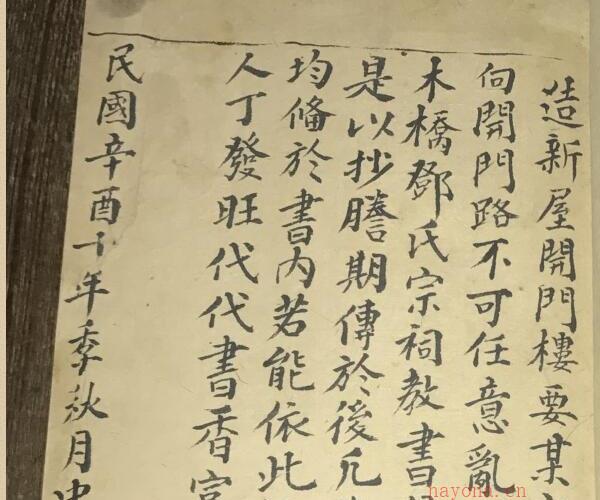 造新屋開門樓要某
向開門路不可任意亂
木橋鄧氏宗祠教書
是以抄謄期傳於後凡
均俻於書內若能依此
人丁發旺代代書香
民國辛酉十年季秋月
nayona.cn